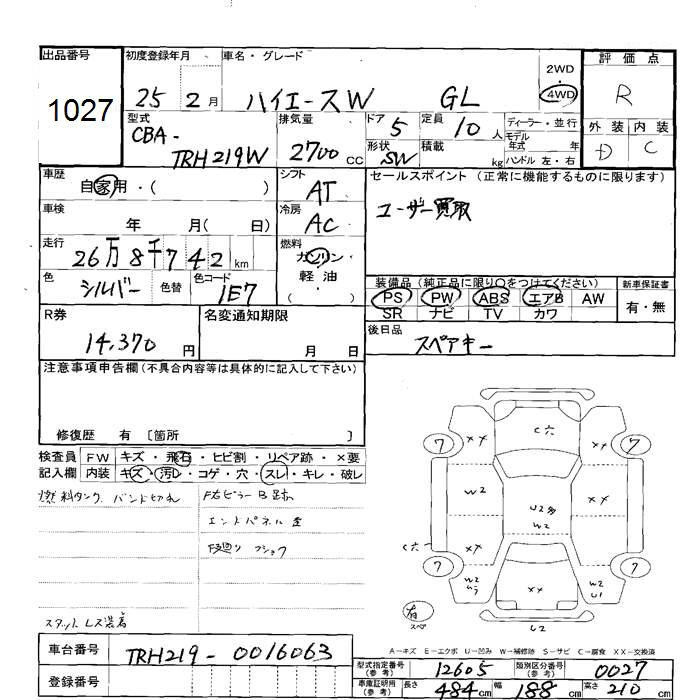 出品番号
1027
初度登録年月
25 2月
車名・グレード
ハイエースW GL
2WD
4WD
評価点
R
外装 内装
D C
型式
CBA-
TRH219W
排気量
2700 CC
ドア
5
定員
10人
形状
SW
積載
kg
ディーラー・並行
モデル
年式 年
ハンドル 左・右
車歴
自家用・( )
シフト
AT
車検
年 月( 日)
冷房
AC
走行
26万8千742 km
燃料
ガソリン
軽油
( )
色
シルバー
色替
色コード
1E7
セールスポイント (正常に機能するものに限ります)
ユーザー買取
装備品 (純正品に限り○をつけてください)
PS PW ABS エアB AW
SR ナビ TV カワ
新車保証書
有・無
R券
14,370 円
名変通知期限
月 日
後日品
スペアキー
注意事項申告欄(不具合内容等は具体的に記入して下さい)
修復歴 有 〔箇所 〕
検査員
記入欄
FW キズ・飛石・ヒビ割・リペア跡・×要
内装 キズ・汚レ・コゲ・穴・スレ・キレ・破レ
燃料タンク バンド切れ
F右ピラーB
エンドパネル
スタットレス装着
C穴
××
××
7
7
W2
U2多
W2
××
C穴
××
××
7
7
W2
××
W2
U1
有
スペ
U2
A-キズ E-エクボ U-凹み W-補修跡 S-サビ C-腐食 XX-交換済
車台番号
TRH219-0016063
登録番号
型式指定番号
(参考)
12605
類別区分番号
(参考)
0027
車庫証明用
(参考)
長さ 484 cm 幅 188 cm 高さ 210 cm